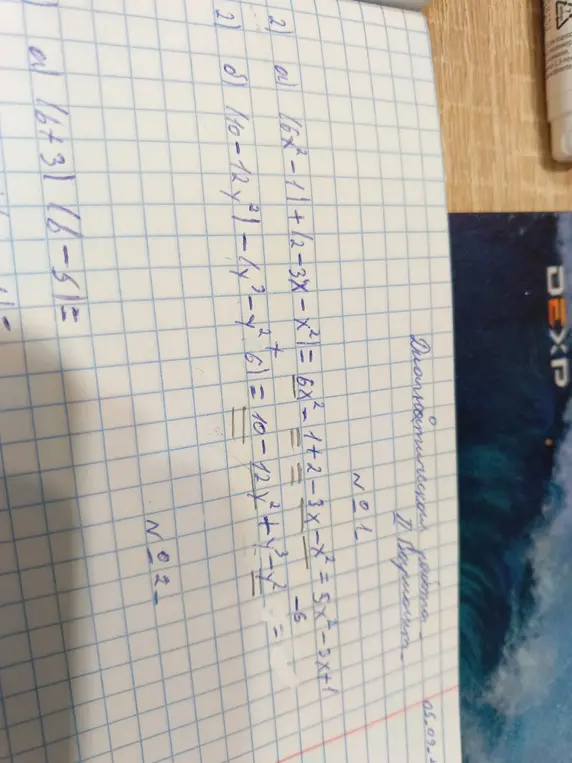 05.09.
Диагностическая работа
II Вариант
№ 1
2) а) (6x² - 1) + (2 - 3x - x²) = 6x² - 1 + 2 - 3x - x² = 5x² - 3x + 1
2) б) (10 - 12y²) - (y³ - y² + 6) = 10 - 12y² + y³ - y² - 6 =
№ 2
а) (b + 3) (b - 5) =
DEXP